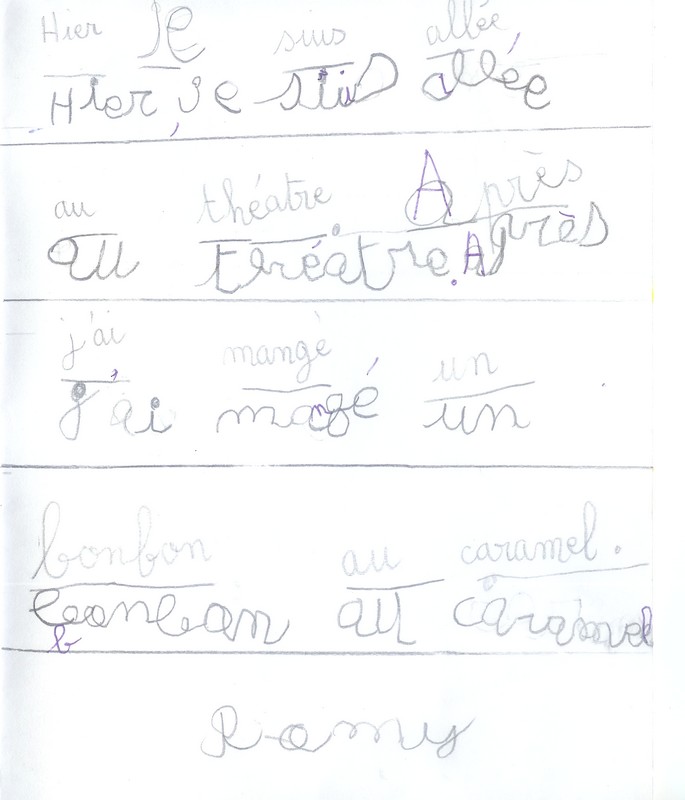 Hier Je suis allée,
Hier, je suis allée
au théatre. Après
au théatre. Après
j'ai mangé un
j'ai mangé un
bonbon au caramel.
bonbon au caramel
b
Romy